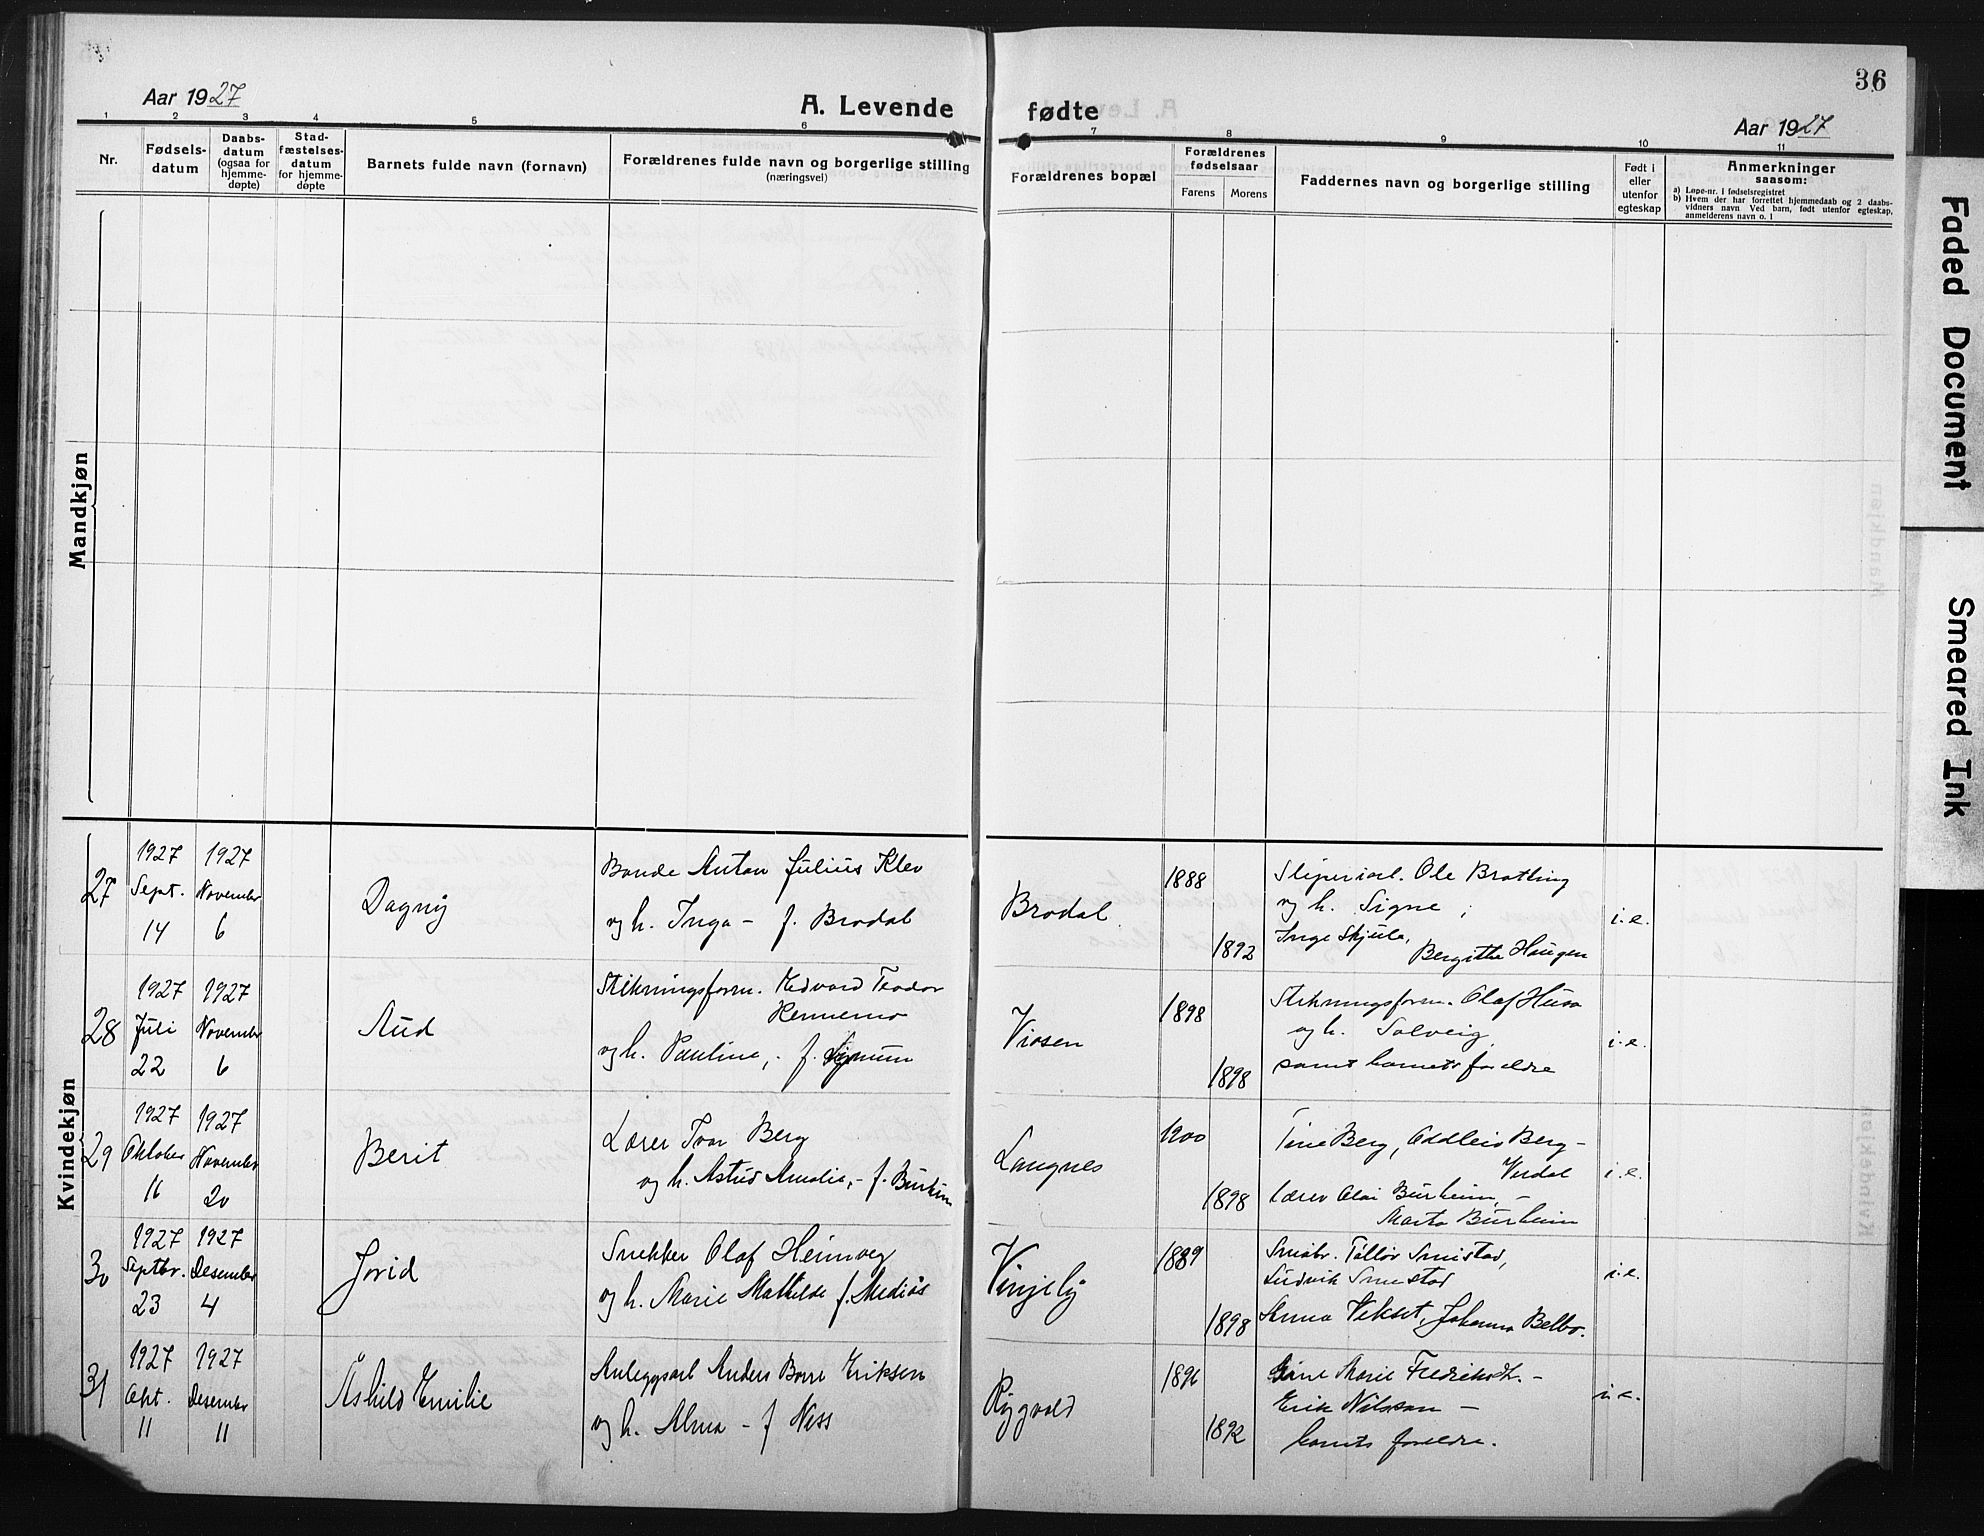 36
Aar 1927
A. Levende fødte
Aar 1927
1 2 3 4 5 6 7 8 9 10 11
Nr.
Fødsels-
datum
Daabs-
datum
(ogsaa for
hjemme-
døpte)
Stad-
fæstelses-
datum
for hjemme-
døpte
Barnets fulde navn (fornavn)
Forældrenes fulde navn og borgerlige stilling
(næringsvei)
Forældrenes bopæl
Forældrenes
fødselsaar
Farens Morens
Faddernes navn og borgerlige stilling
Født i
eller
utenfor
egteskap
Anmerkninger
saasom:
a) Løpe-nr. i fødselsregistret
b) Hvem der har forrettet hjemmedaab og 2 daabs-
vidners navn Ved barn, født utenfor egteskap,
anmelderens navn o. l
Mandkjøn
Kvindekjøn
27
1927
Sept.
14
1927
November
6
Dagny
Bonde Anton Julius Klev
og h. Inga – f. Brodal
Brodal
1888
1892
Ole Bratling
og h. Signe ;
Inge Skjule,
Bergitha Haugen
i.e.
28
1927
Juli
22
1927
November
6
Aud
Stikningsform. Edvard Teodor
Hennemo
og h. Pauline, f.
Viosen
1898
1898
Stikningsform. Olaf Husa
og h. Solveig
samt barnets foreldre
i.e.
29
1927
Oktober
16
1927
November
20
Berit
Lærer Ivar Berg
og h. Astrid Amalie, – f. Burheim
Langnes
1900
1898
Berg, Oddleiv Berg –
Verdal
Lærer Olai Burheim, –
Marta Burheim
i.e.
30
1927
Septbr.
23
1927
Desember
4
Jorid
Snekker Olaf Heimveg
og h. Marie Mathilde f. Mediås
Vinjeby
1889
1898
Smabr. Smistad,
Ludvik Smestad
Anna Vekset, Johanna Belbo.
i.e.
31
1927
Okt.
11
1927
Desember
11
Åshild Emilie
Anleggsarb Anders Borre Eriksen
og h. Alma – f Ness
Rygvold
1896
1892
Marie Fredriksdt. –
Erik Nilsson –
barnets foreldre.
i.e.
Faded Document
Smeared Ink